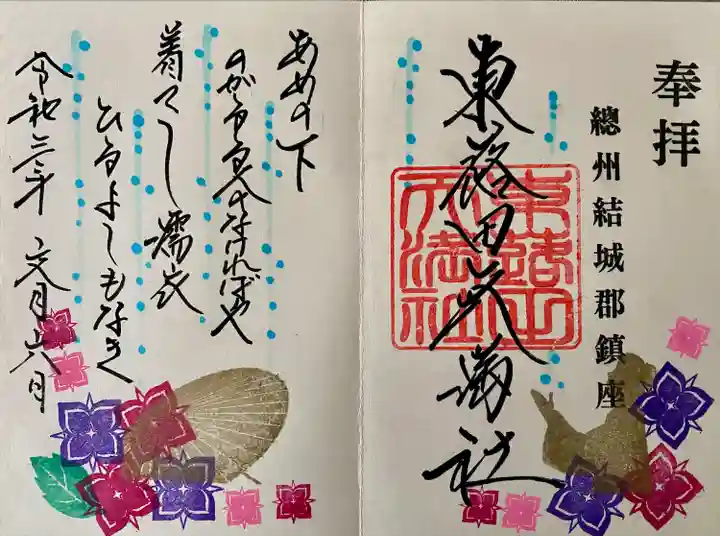 奉拝
總州結城郡鎮座
東蕗田天満社
東蕗田
天満社
あめの下
のがるる人のなければや
着てし濡衣
ひるよしもなき
令和三年 文月六日